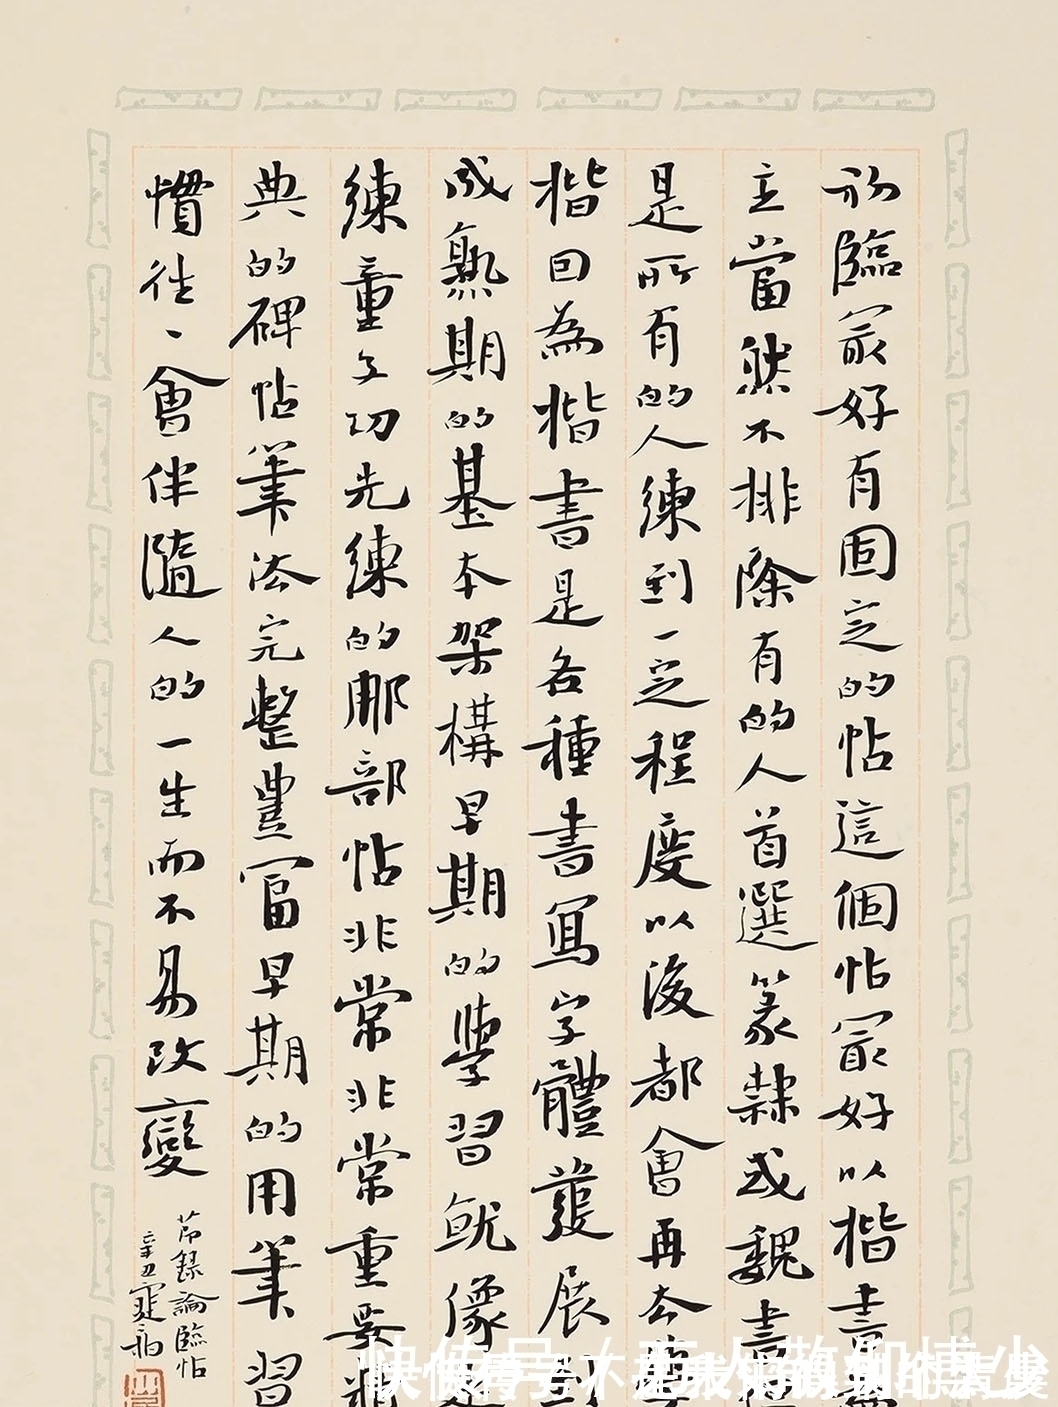 初臨最好有固定的帖這個帖最好以楷書為
主當然不排除有的人首選篆隸或魏書
是所有的人練到一定程度以後都會再去
楷回為楷書是各種書寫字體發展到
成熟期的基本架構早期的學習就像是
練童子功先練的那部帖非常非常重要
典的碑帖筆法完整豊富早期的用筆習
慣往、會伴隨人的一生而不易改變
节錄論臨帖
辛丑